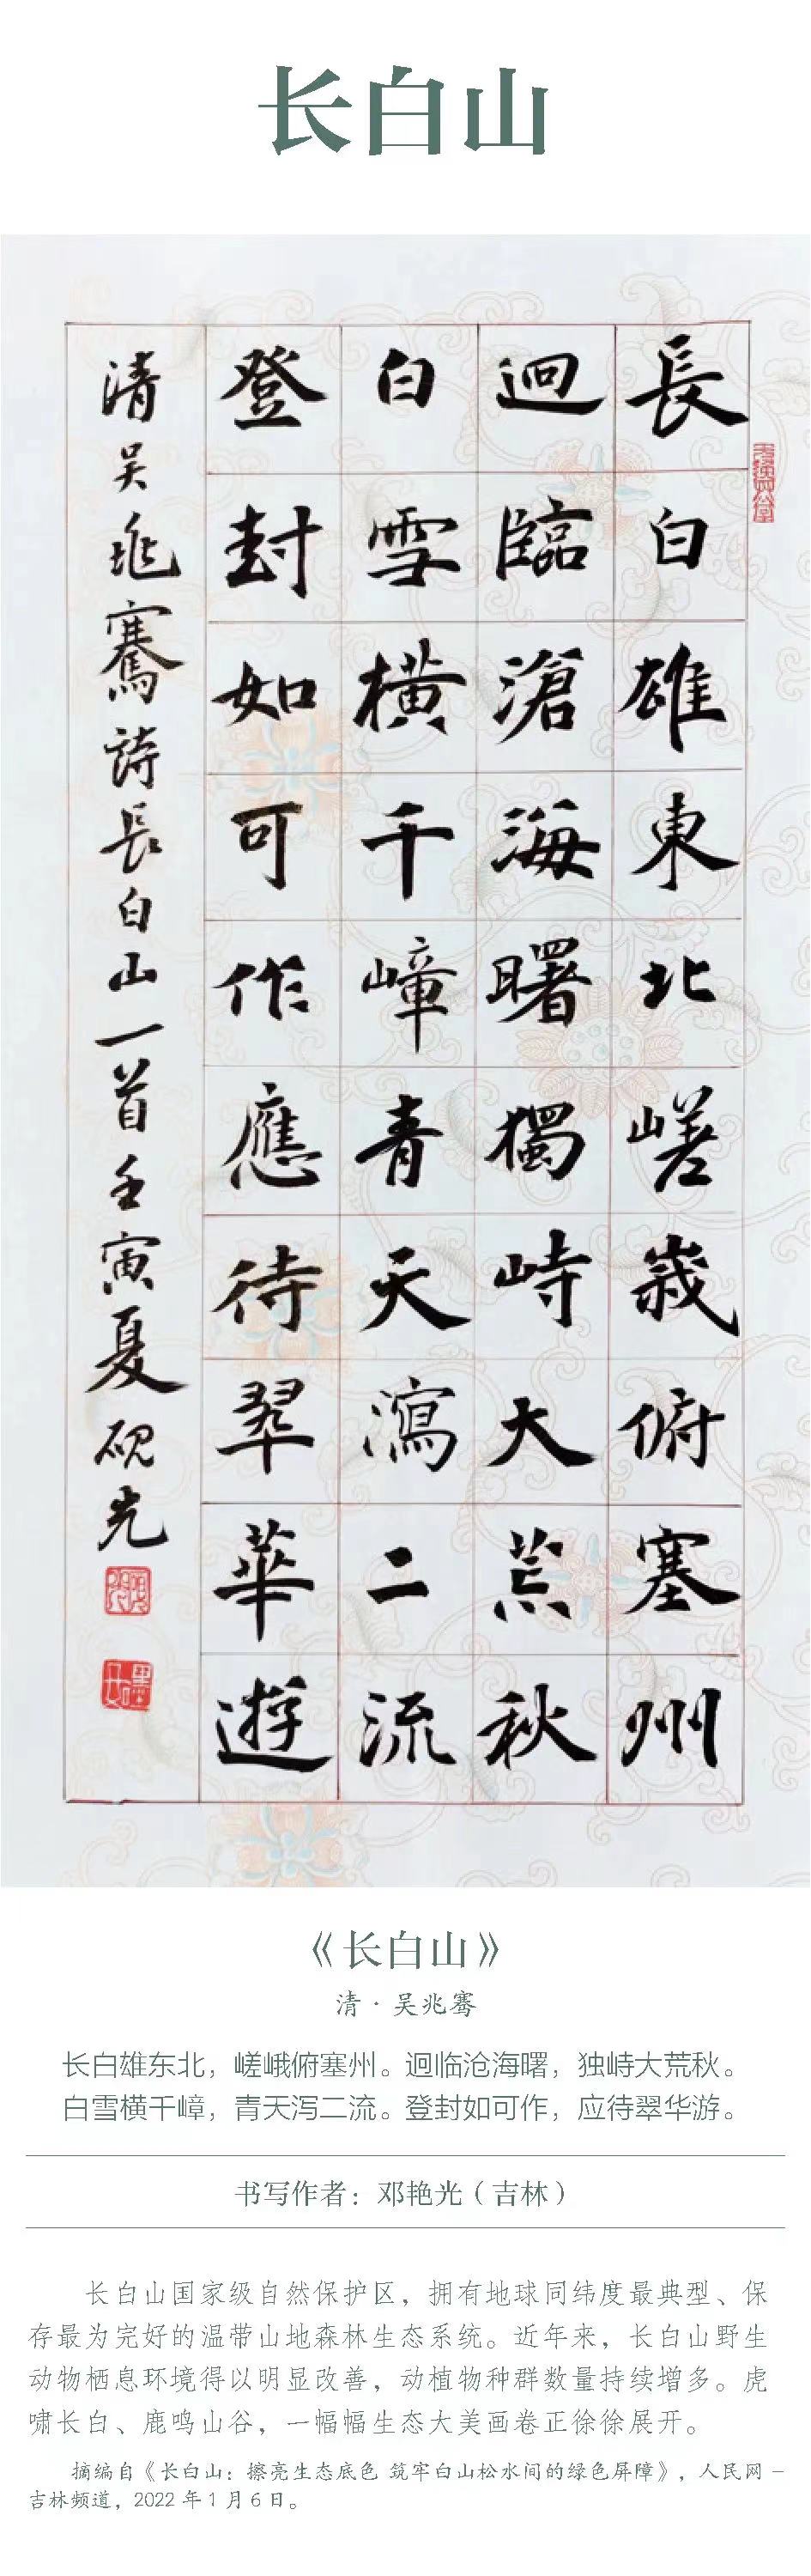 长白山
長白雄東北嵯峩俯塞州
迥臨滄海曙獨峙大荒秋
白雪橫千嶂青天瀉二流
登封如可作應待翠華遊
清吴兆騫詩長白山一首壬寅夏硯光
墨
《长白山》
清·吴兆骞
长白雄东北，嵯峨俯塞州。迥临沧海曙，独峙大荒秋。
白雪横千嶂，青天泻二流。登封如可作，应待翠华游。
书写作者：邓艳光（吉林）
长白山国家级自然保护区，拥有地球同纬度最典型、保
存最为完好的温带山地森林生态系统。近年来，长白山野生
动物栖息环境得以明显改善，动植物种群数量持续增多。虎
啸长白、鹿鸣山谷，一幅幅生态大美画卷正徐徐展开。
摘编自《长白山：擦亮生态底色 筑牢白山松水间的绿色屏障》，人民网－
吉林频道，2022 年 1 月 6 日。